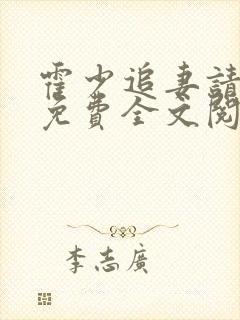 霍少追妻請
免費全文閱
李志廣